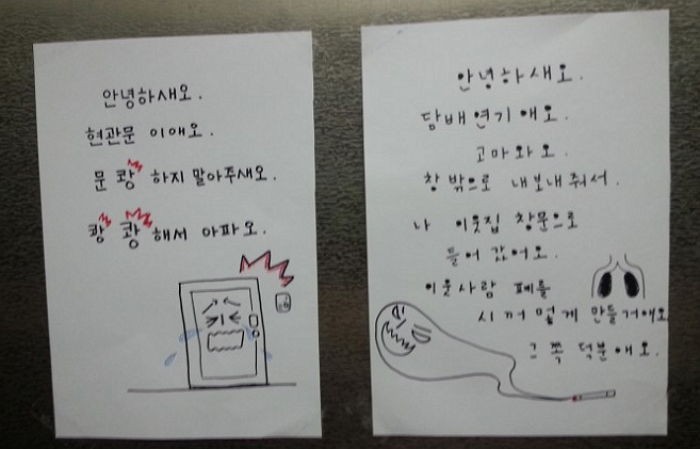 안녕하새오.
현관문 이애오.
문 쾅 하지 말아주새오.
쾅 쾅 해서 아파오.
안녕하새오.
담배연기애오.
고마와오.
창 밖으로 내보내줘서.
나 이웃집 창문으로
들어 갔어오.
이웃사람 폐를
시꺼멓게 만들거애오
그쪽 덕분애오.